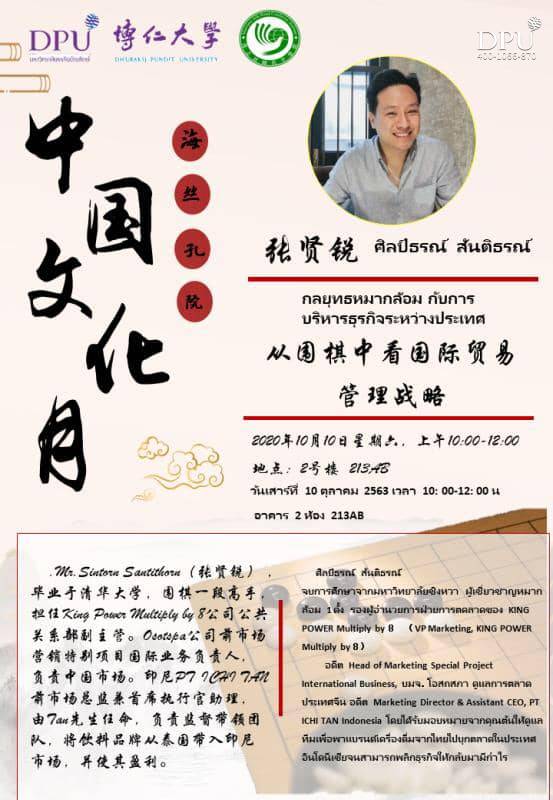 DPU
มหาวิทยาลัยธุรกิจบัณฑิตย์
博仁大学
DHURAKIJ PUNDIT UNIVERSITY
DPU
400-1066-670
中国文化月
海丝孔院
张贤锐 ศิลป์ธรณ์ สันติธรณ์
กลยุทธหมากล้อม กับการ
บริหารธุรกิจระหว่างประเทศ
从围棋中看国际贸易
管理战略
2020年10月10日星期六，上午10:00-12:00
地点：2号楼 213AB
วันเสาร์ที่ 10 ตุลาคม 2563 เวลา 10: 00-12: 00 น
อาคาร 2 ห้อง 213AB
.Mr.Sintorn Santithorn（张贤锐），
毕业于清华大学，围棋一段高手，
担任King Power Multiply by 8公司公共
关系部副主管。Osotspa公司前市场
营销特别项目国际业务负责人，
负责中国市场。印尼PT ICHI TAN
前市场总监兼首席执行官助理，
由Tan先生任命，负责监督带领团
队，将饮料品牌从泰国带入印尼
市场，并使其盈利。
ศิลป์ธรณ์ สันติธรณ์
จบการศึกษาจากมหาวิทยาลัยชิงหวา ผู้เชี่ยวชาญหมาก
ล้อม 1 ดั้ง รองผู้อำนวยการฝ่ายการตลาดของ KING
POWER Multiply by 8 （VP Marketing, KING POWER
Multiply by 8）
อดีต Head of Marketing Special Project
International Business, บมจ. โอสถสภา ดูแลการตลาด
ประเทศจีน อดีต Marketing Director & Assistant CEO, PT
ICHI TAN Indonesia โดยได้รับมอบหมายจากคุณตันให้ดูแล
ทีมเพื่อพาแบรนด์เครื่องดื่มจากไทยไปบุกตลาดในประเทศ
อินโดนีเซียจนสามารถพลิกธุรกิจให้กลับมามีกำไร